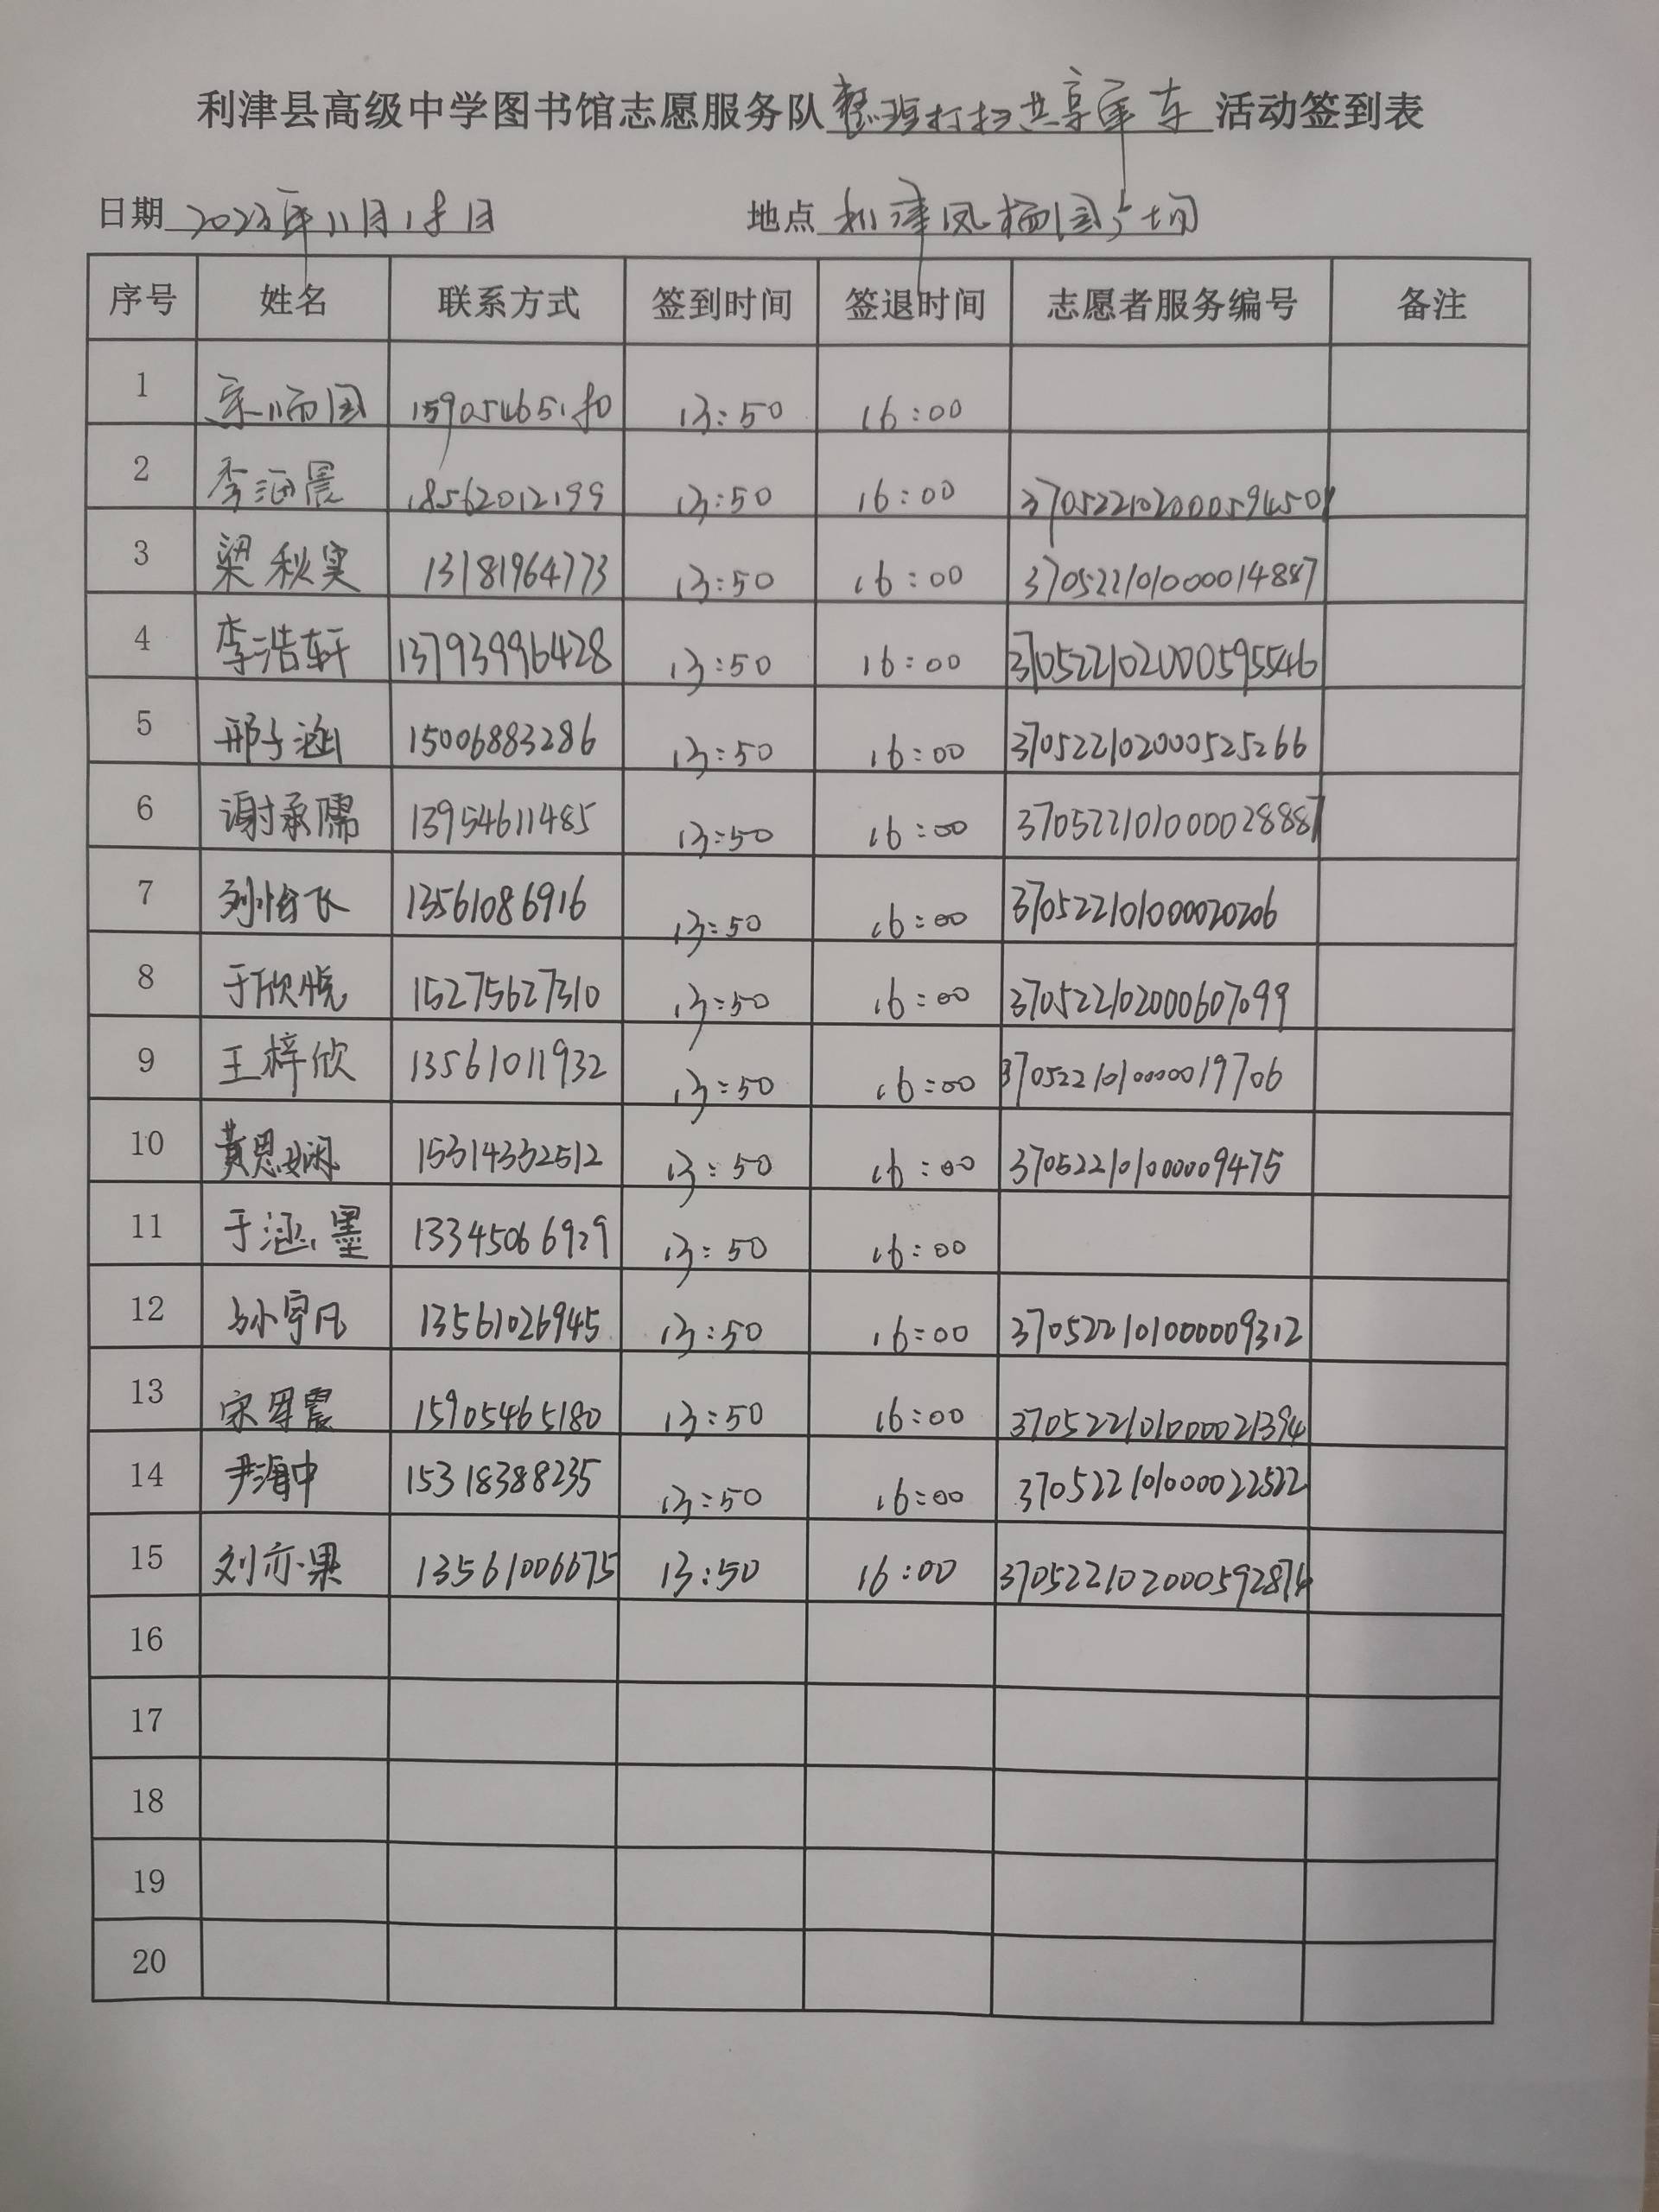 利津县高级中学图书馆志愿服务队整理打扫共享单车活动签到表
日期 2023年11月18日 地点 利津凤栖园广场
序号 姓名 联系方式 签到时间 签退时间 志愿者服务编号 备注
1 宋炳国 15905465180 13:50 16:00
2 李涵晨 18562012199 13:50 16:00 370522102000594501
3 梁秋实 13181964773 13:50 16:00 370522101000014887
4 李浩轩 13793996428 13:50 16:00 370522102000595546
5 邢子涵 15006883286 13:50 16:00 370522102000525266
6 谢承儒 13954611485 13:50 16:00 370522101000028887
7 刘怡飞 13561086916 13:50 16:00 370522101000020206
8 于欣悦 15275627310 13:50 16:00 370522102000607099
9 王梓欣 13561011932 13:50 16:00 370522101000019706
10 黄思娴 15314332512 13:50 16:00 370522101000009475
11 于涵墨 13345066929 13:50 16:00
12 孙宇凡 13561026945 13:50 16:00 370522101000009312
13 宋军震 15905465180 13:50 16:00 370522101000021394
14 尹海中 15318388235 13:50 16:00 370522101000022522
15 刘亦果 13561006675 13:50 16:00 370522102000592874
16
17
18
19
20